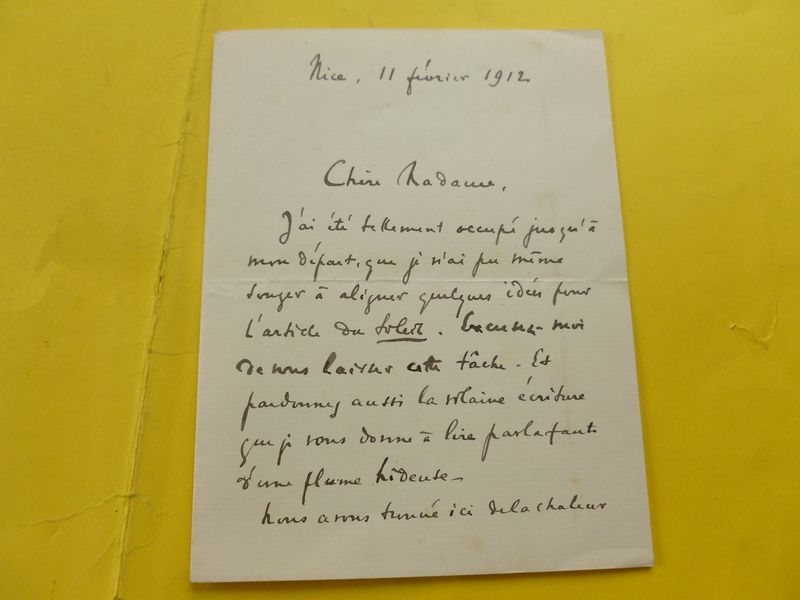 Nice, 11 février 1912
Chère Madame,
J'ai été tellement occupé jusqu'à
mon départ, que je n'ai pu même
songer à aligner quelques idées pour
l'article du Soleil. Excusez-moi
de vous laisser cette tâche. Et
pardonnez aussi la vilaine écriture
que je vous donne à lire par la faute
d'une plume hideuse.
Nous avons trouvé ici de la chaleur